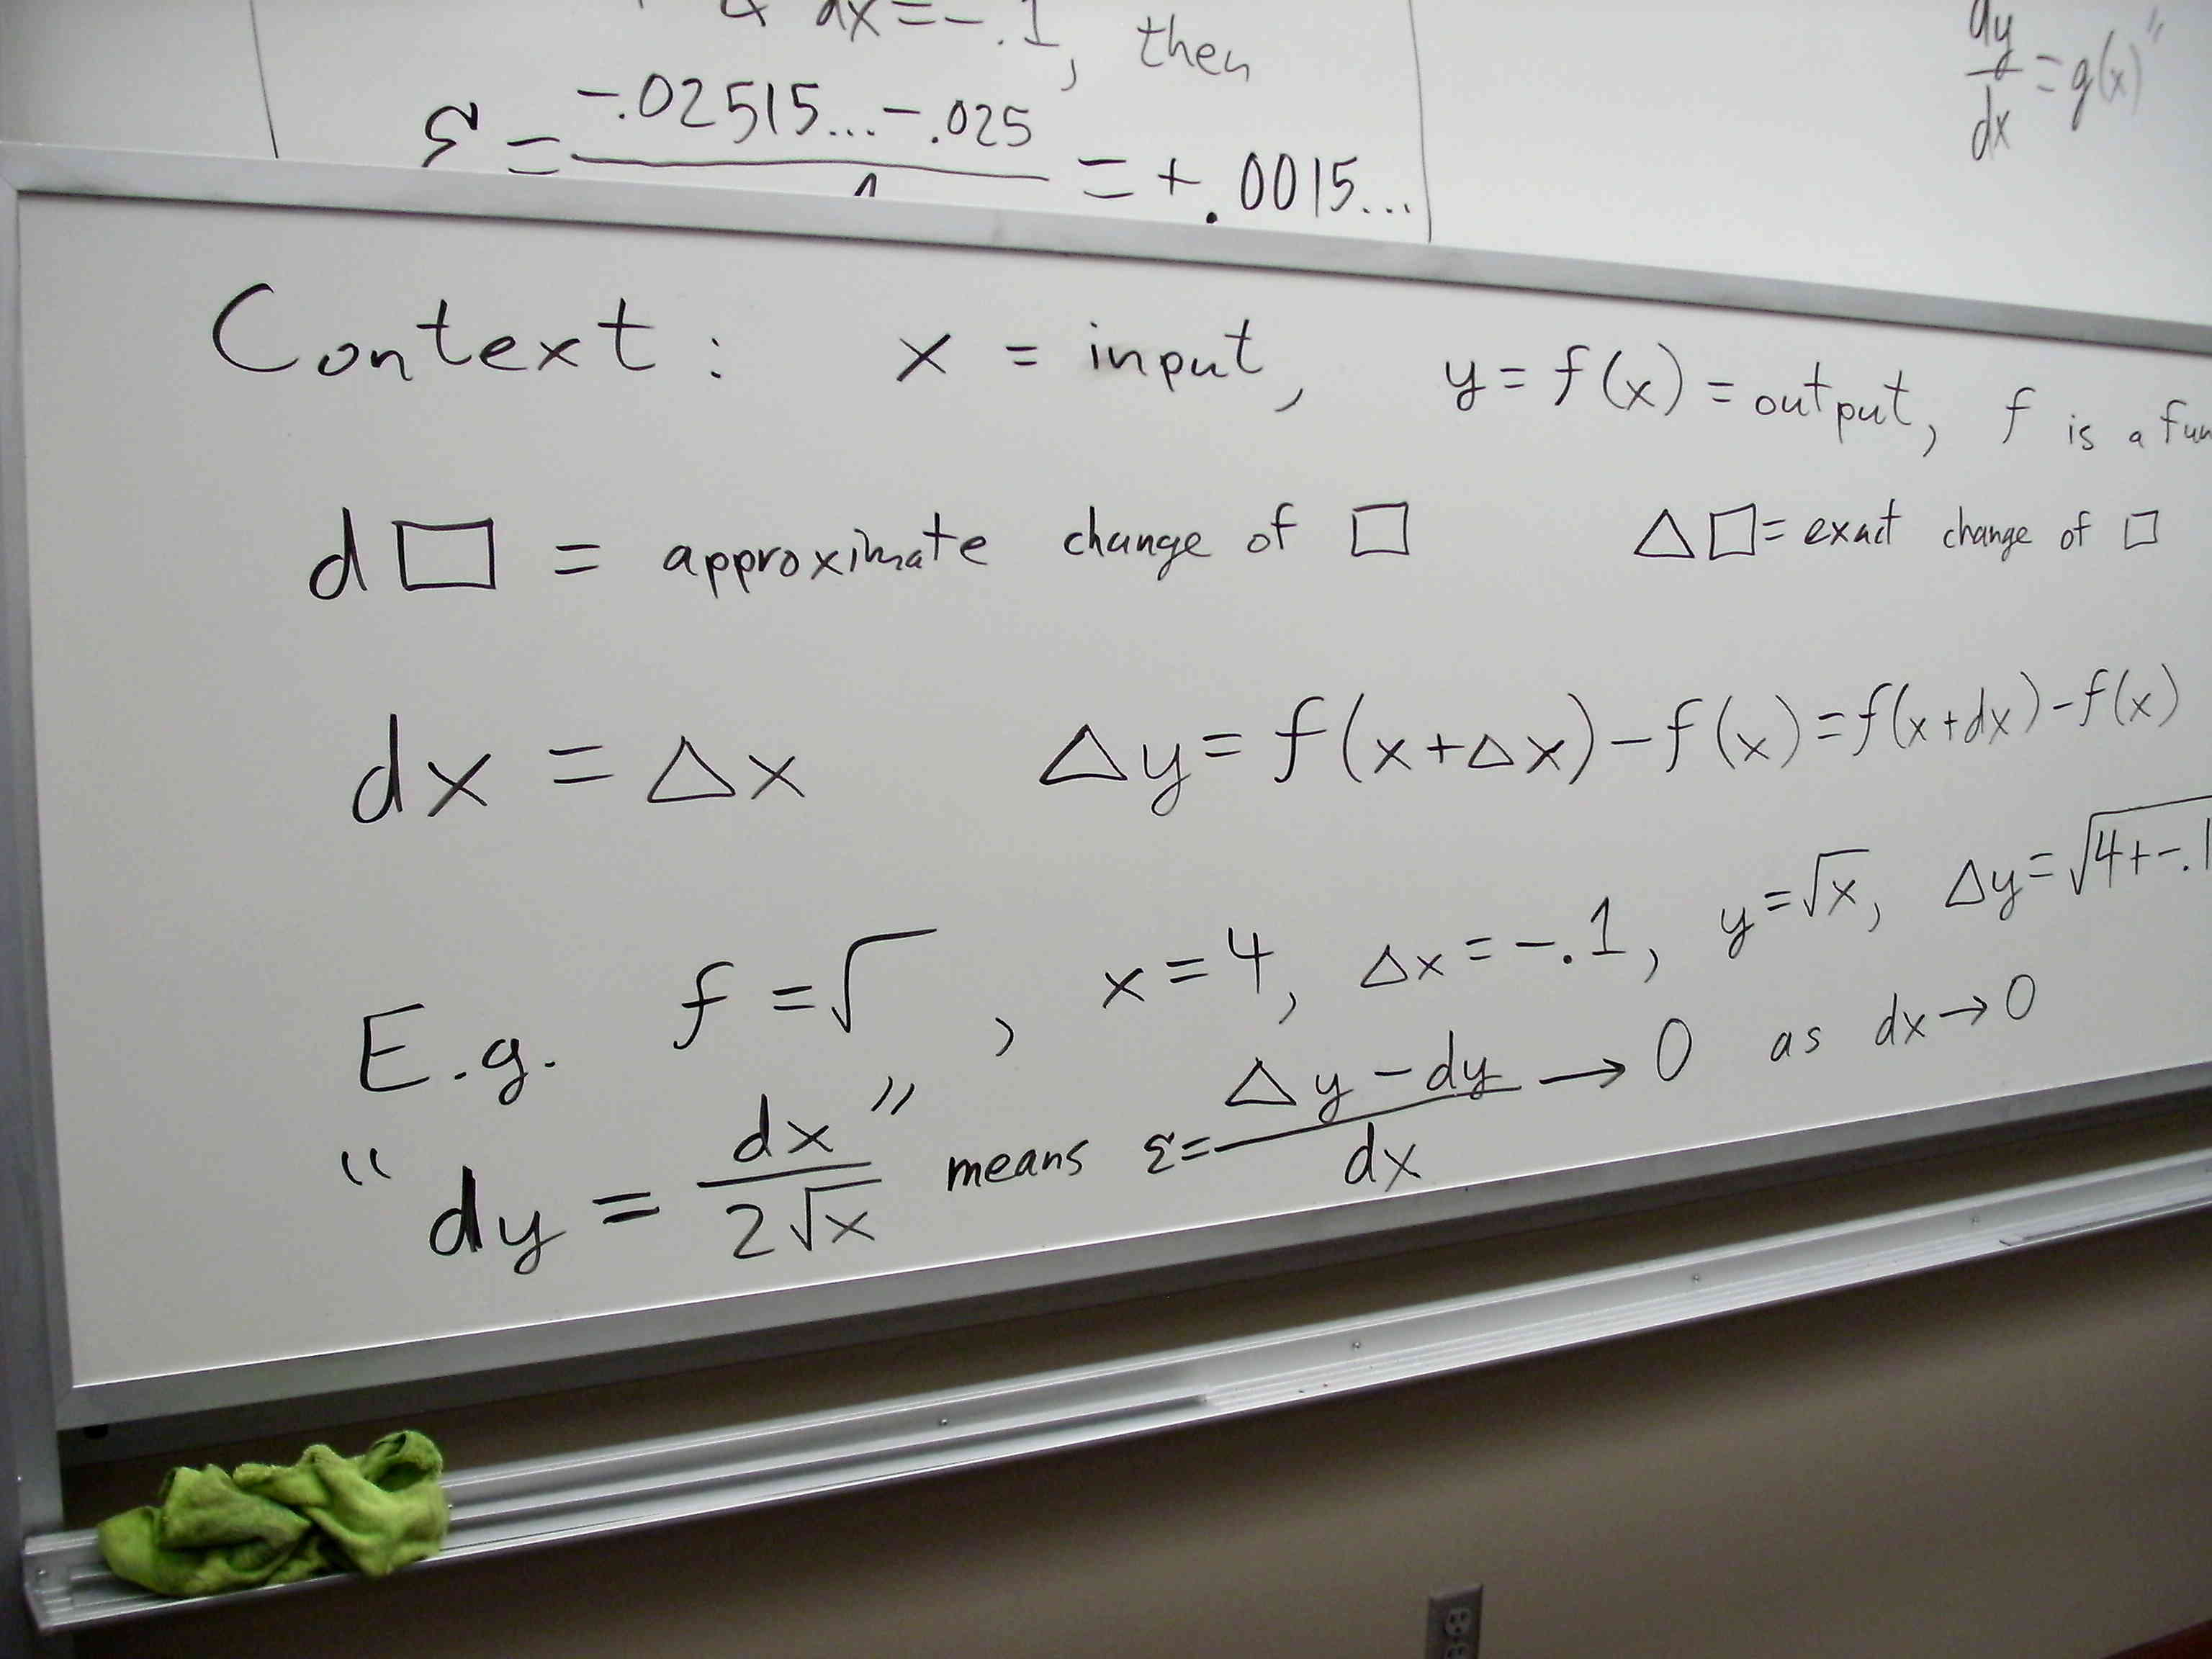 & dx=-.1, then
ε = -.02515...-.025 / = +.0015...
dy/dx = g(x)"
Context: x = input, y = f(x) = output, f is a fun
d□ = approximate change of □ △□ = exact change of □
dx = △x △y = f(x+△x)-f(x) = f(x+dx)-f(x)
E.g. f = √ , x = 4, △x = -.1, y = √x, △y = √4+-.1
"dy = dx/2√x" means ε = △y-dy/dx → 0 as dx → 0